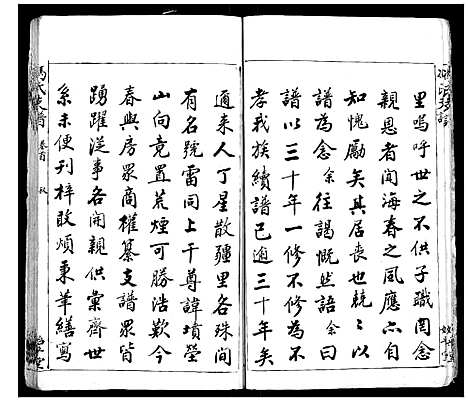 里嗚呼世之不供子職罔念
親恩者聞海春之風應亦自
知愧勵矣其居喪也兢兢以
譜為念余往謁慨然語余曰
譜以三十年一修不修為不
孝我族續譜已逾三十年矣
邇來人丁星散疆里各殊間
有名號雷同上千尊諱墳塋
山向竟置荒煙可勝浩歎今
春與房眾商權纂支譜眾皆
踴躍從事各開親供彙齊世
系未便刊梓敢煩秉筆繕寫
馮氏支譜 卷首